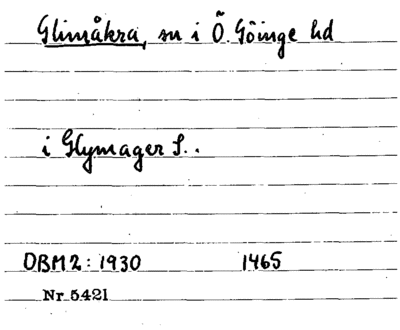 Glimåkra, sn i Ö Göinge hd
i Glymager S..
DBM2: 1930 1465
Nr 5421